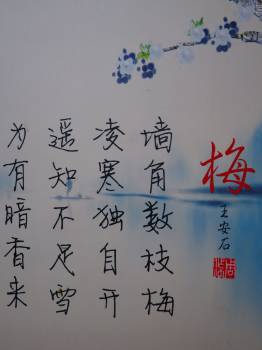 梅
王安石
墙角数枝梅
凌寒独自开
遥知不足雪
为有暗香来